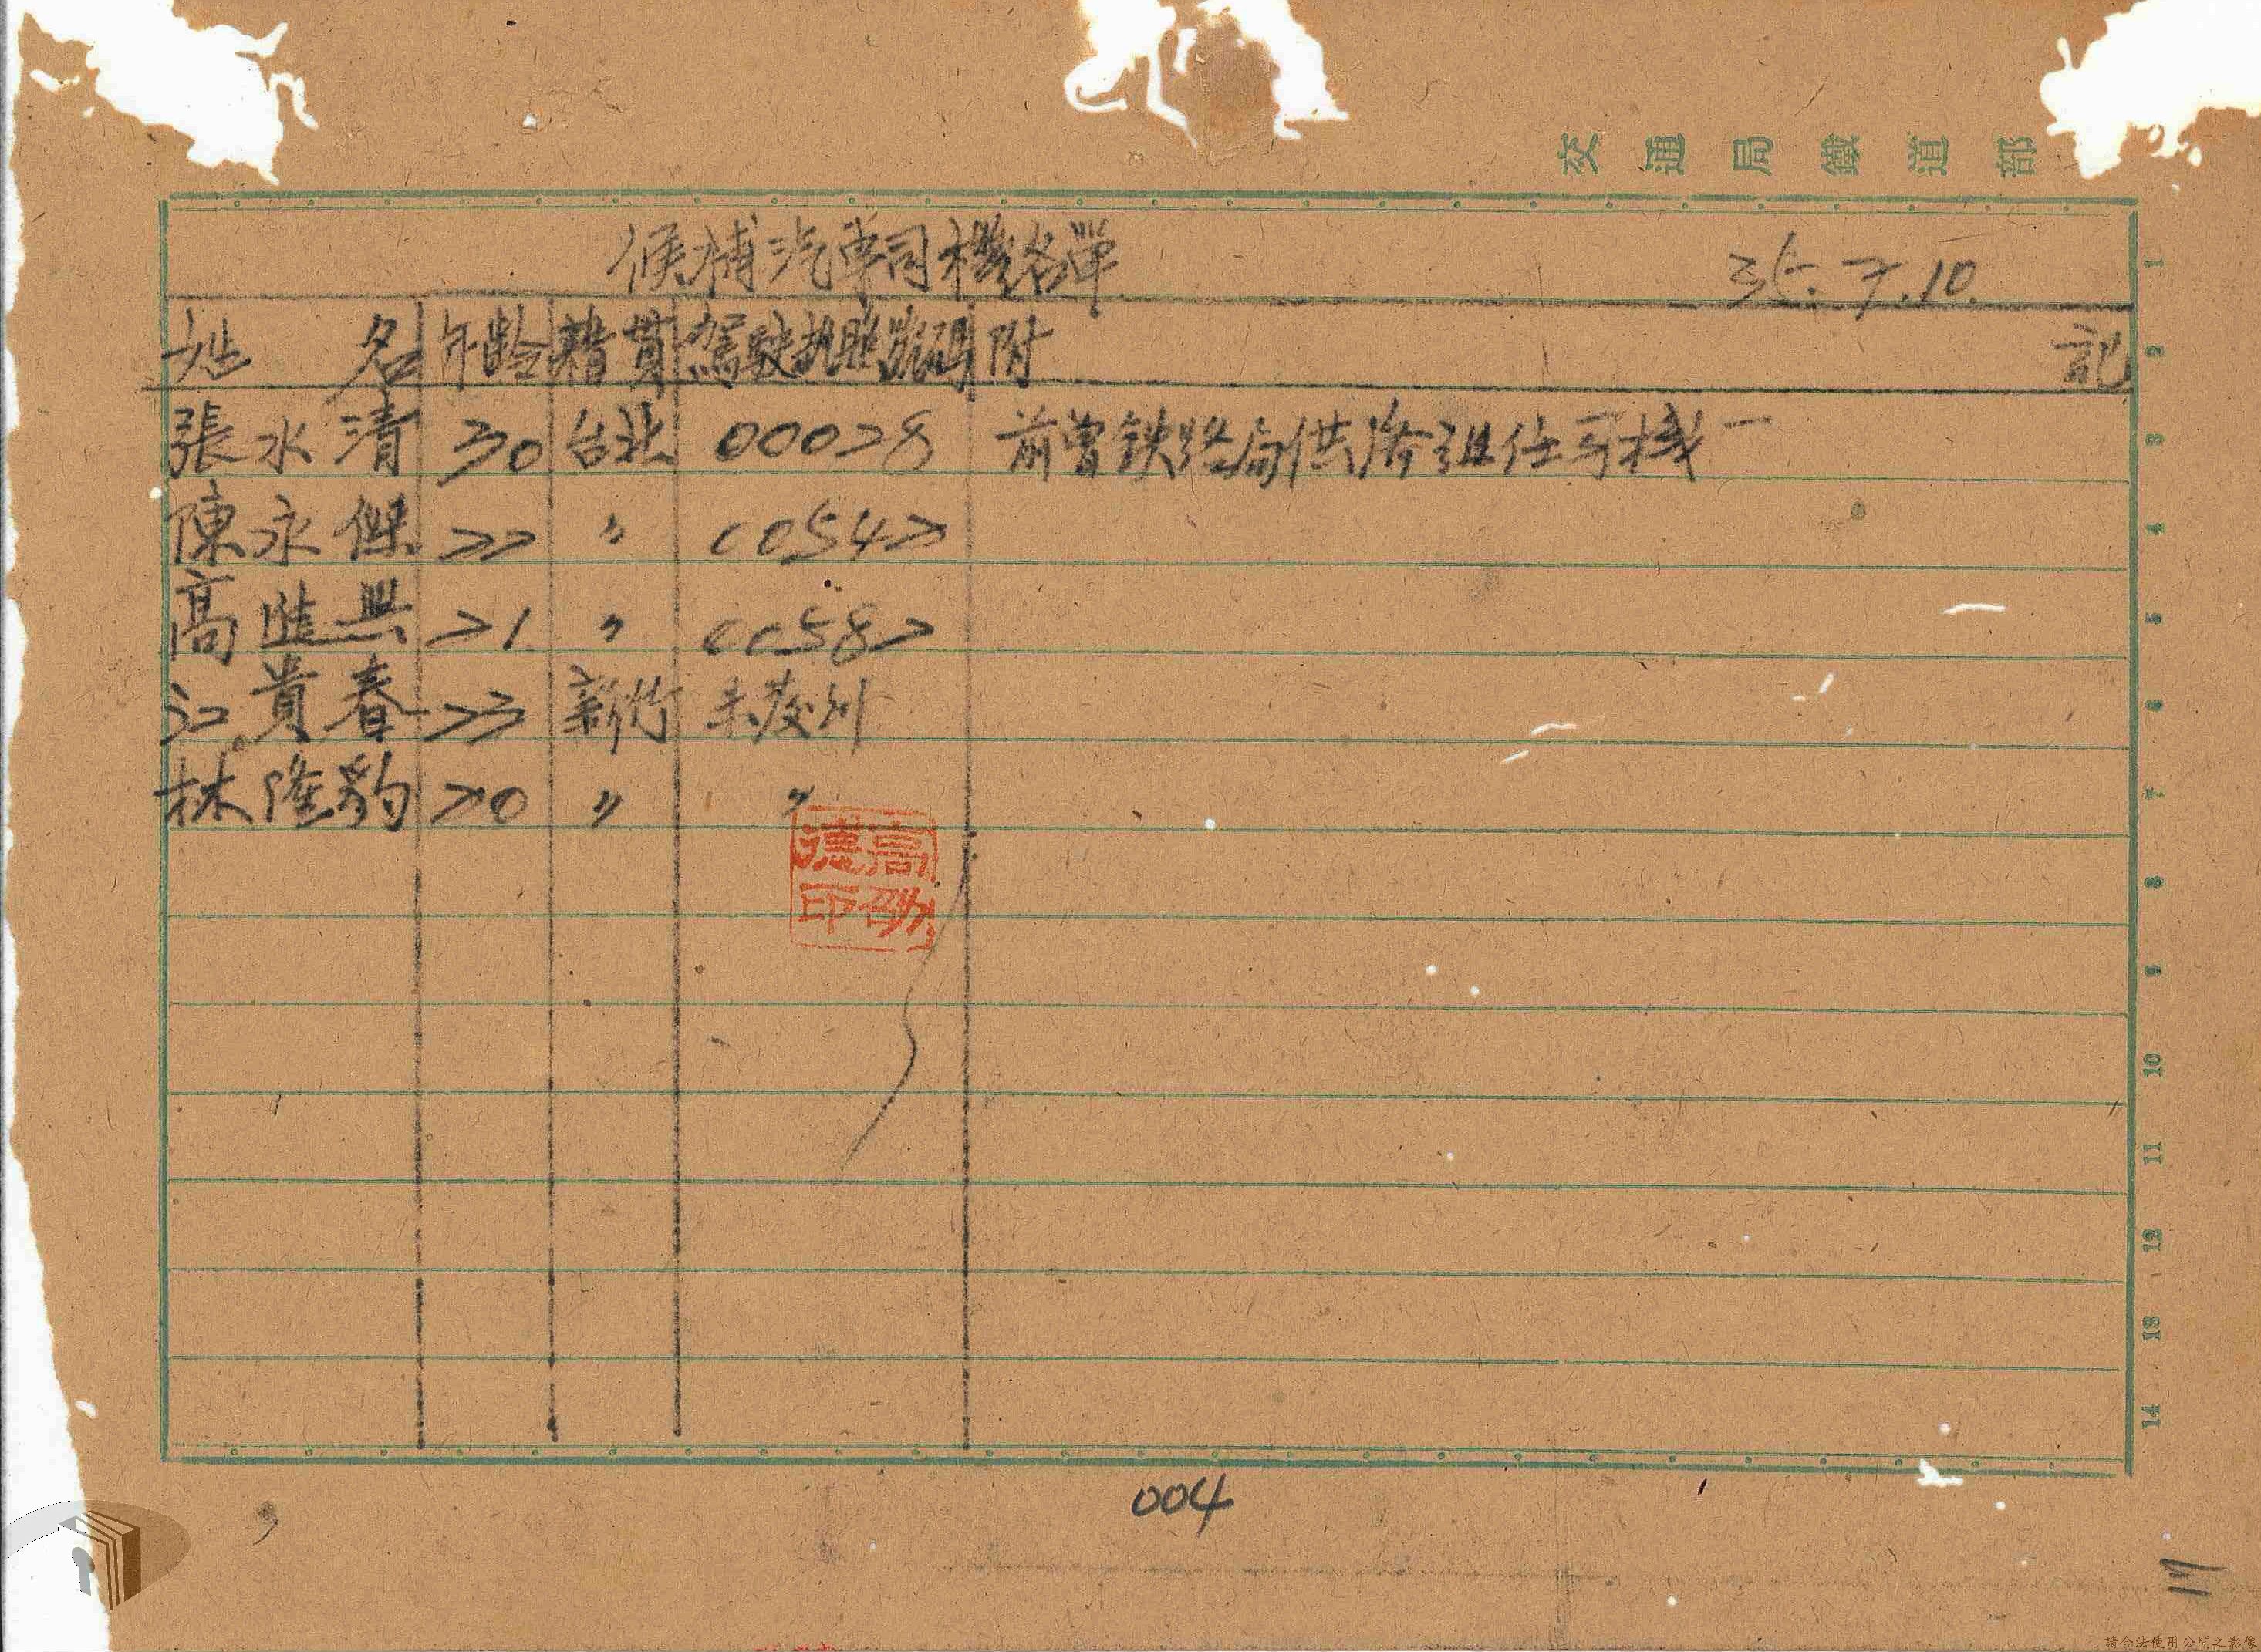 交通局鐵道部
候補汽車司機名單 35.7.10.
姓名 年齡 籍貫 駕駛執照號碼 附記
張水清 30 台北 00028 前曾鉄路局供済組任司机
陳永傑 22 〃 00542
高進興 21 〃 00582
江貴春 23 新竹 未發州
林隆豹 20 〃 〃
高劭德印
1
2
3
4
5
6
7
8
9
10
11
12
13
14
004
三
請合法使用公開之影像